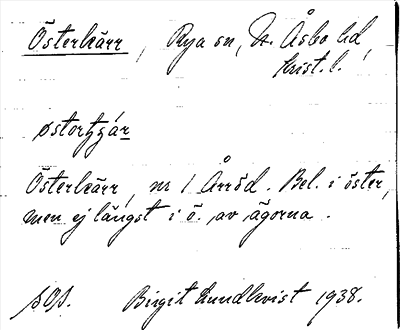 Österkärr, Rya sn, N. Åsbo hd,
Krist. l.
Österkärr, nr 1 Årröd. Bel. i öster,
men ej längst i ö. av ägorna.
Birgit Lundkvist 1938.